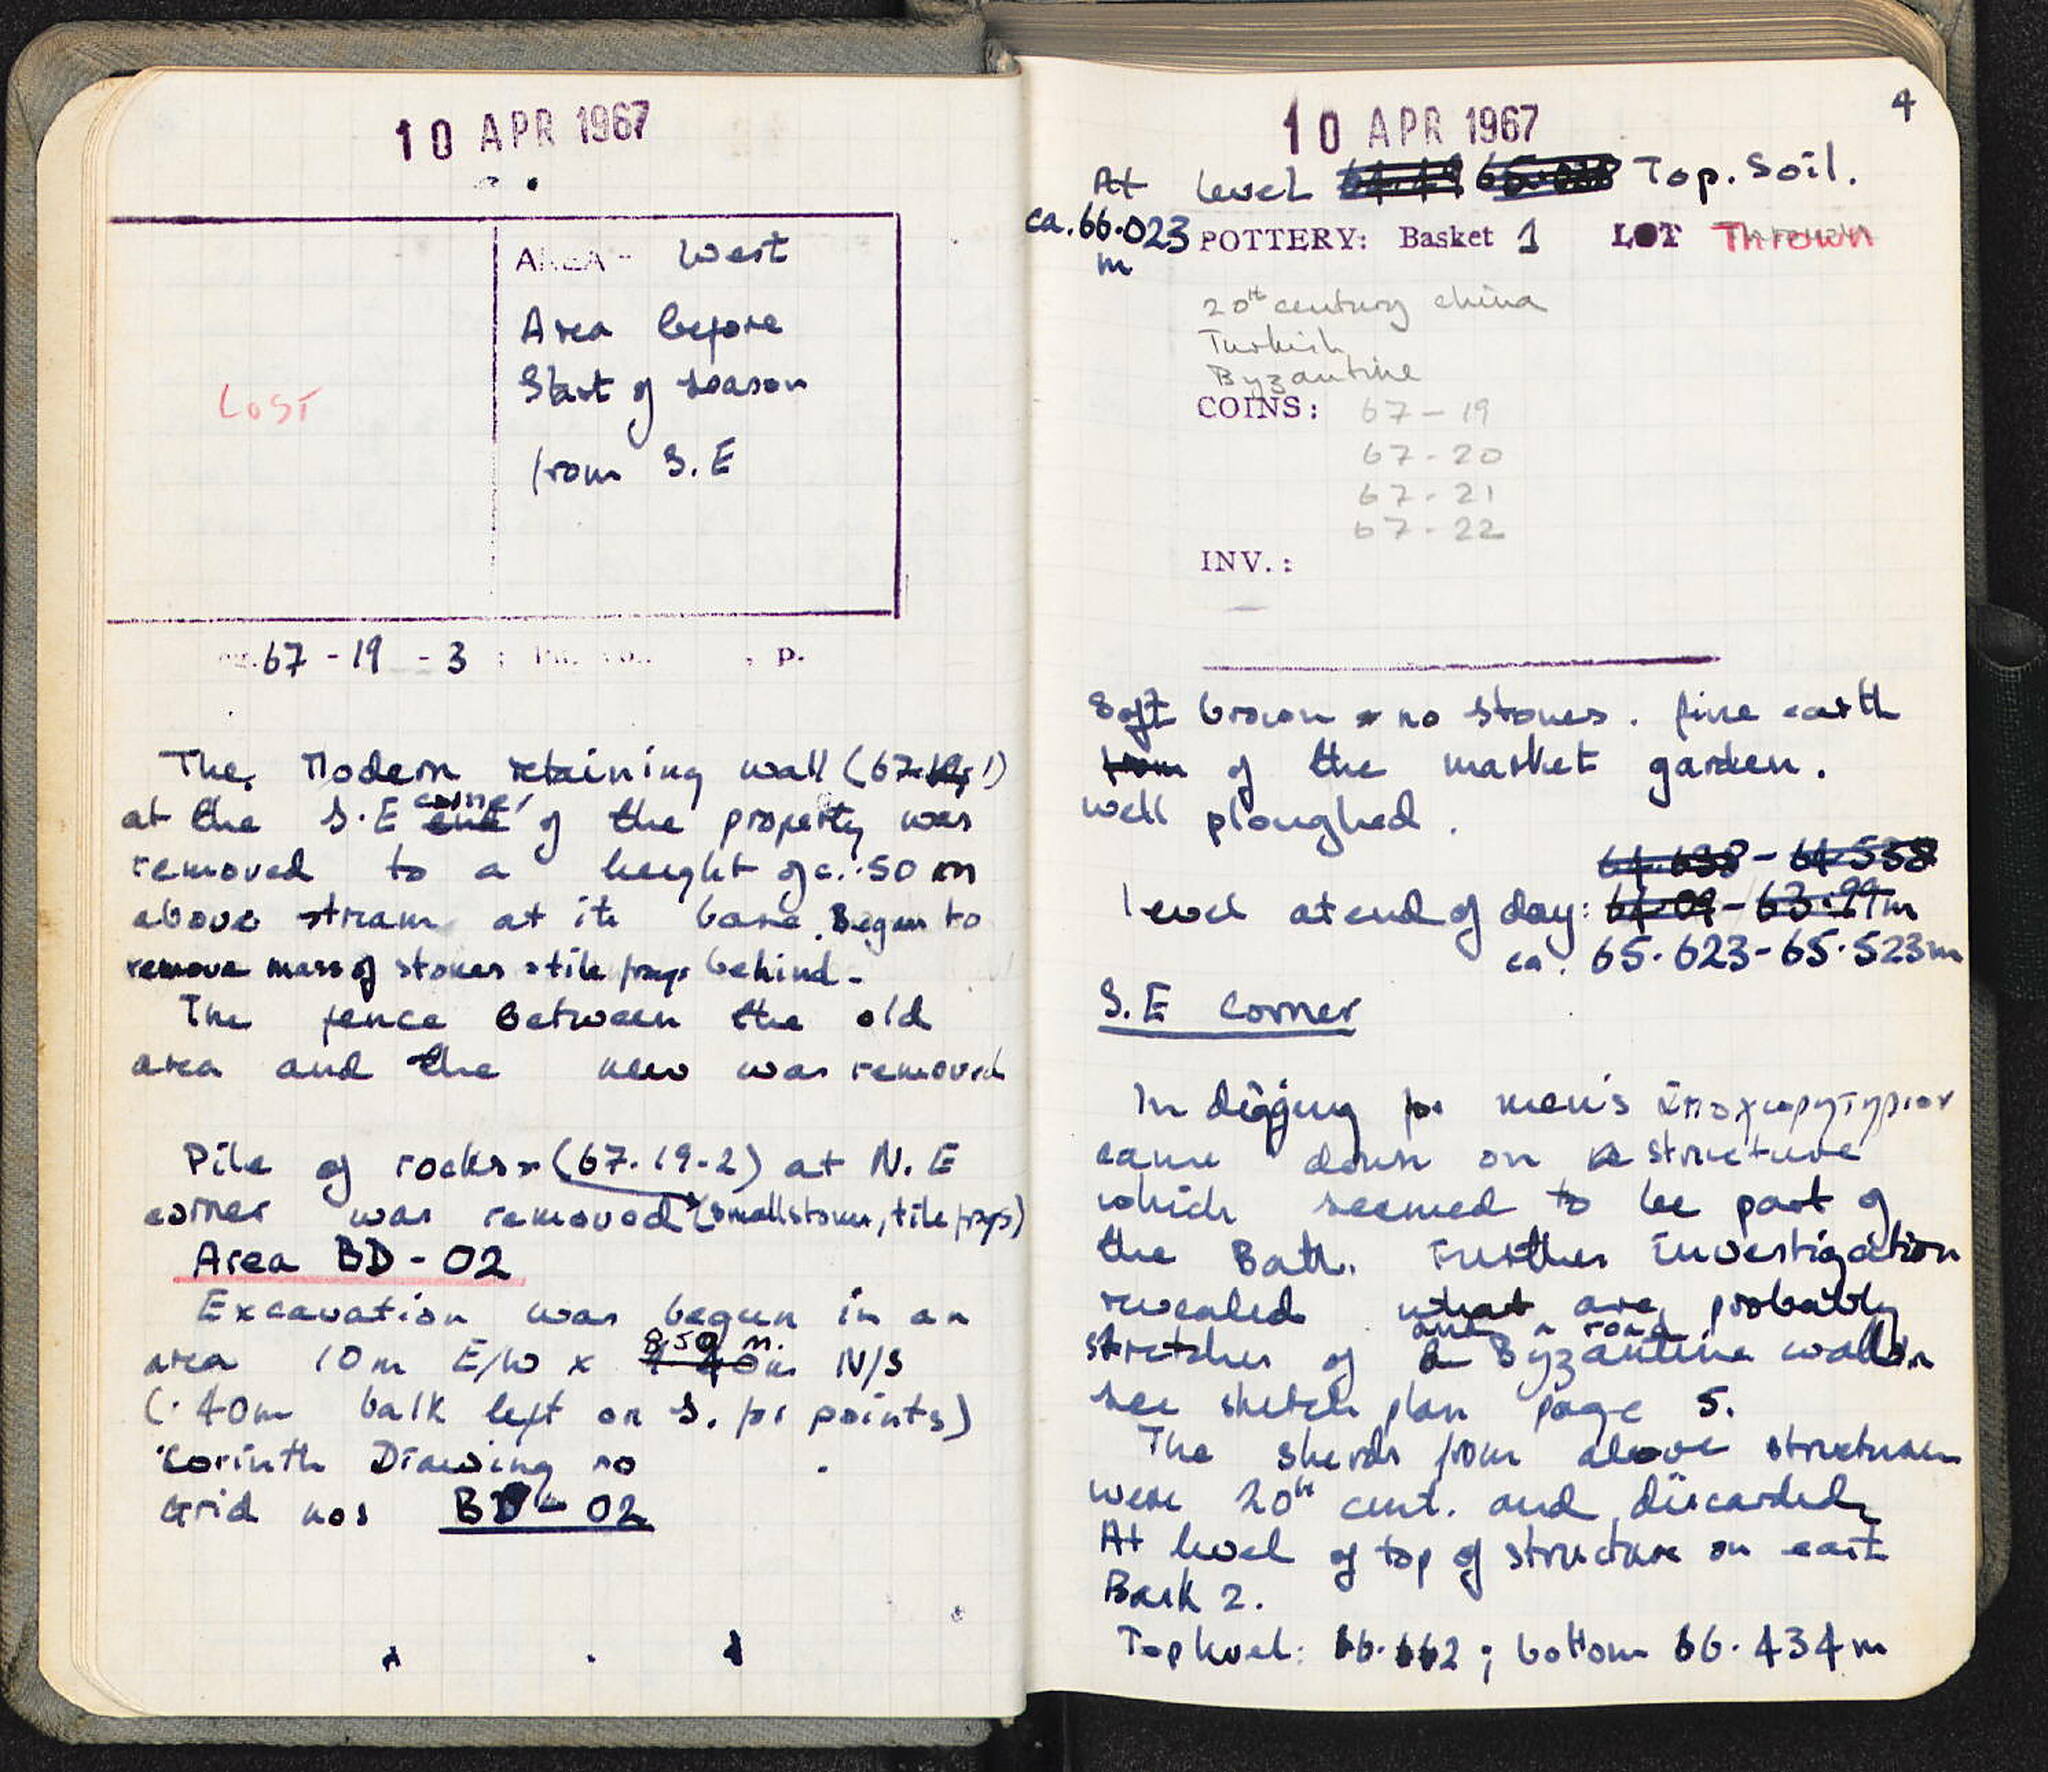 10 APR 1967
AREA - West
Area before
Start of season
from S.E
LOST
67 - 19 - 3 : , p.
The Modern retaining wall (67.19.1)
at the S.E end corner of the property was
removed to a height of c. .50 m
above stream at its base. Began to
remove mass of stones + tile frags behind -
The fence between the old
area and the new was removed
Pile of rocks (67.19-2) at N.E
corner was removed (small stones, tile frags)
Area BD - 02
Excavation was begun in an
area 10m E/W x 8.50 m. N/S
(.40m balk left on S. for points)
Corinth Drawing no .
Grid nos BD - 02
4
10 APR 1967
At level Top. Soil.
ca. 66.023
m
POTTERY: Basket 1 LOT Thrown
20th century china
Turkish
Byzantine
COINS: 67 - 19
67 - 20
67 - 21
67 - 22
INV.:
Soft brown + no stones. fine earth
from of the market garden.
well ploughed.
64.638 - 64.538
level at end of day: 64.09 - 63.99m
ca. 65.623 - 65.523m
S.E corner
In digging for men's
came down on a structure
which seemed to be part of
the Bath. Further investigation
revealed what are probably
stretches of a Byzantine wall and a road
see sketch plan page 5.
The sherds from above structures
were 20th cent. and discarded.
At level of top of structure on east
Bask 2.
Top level: 66.662 ; bottom 66.434m